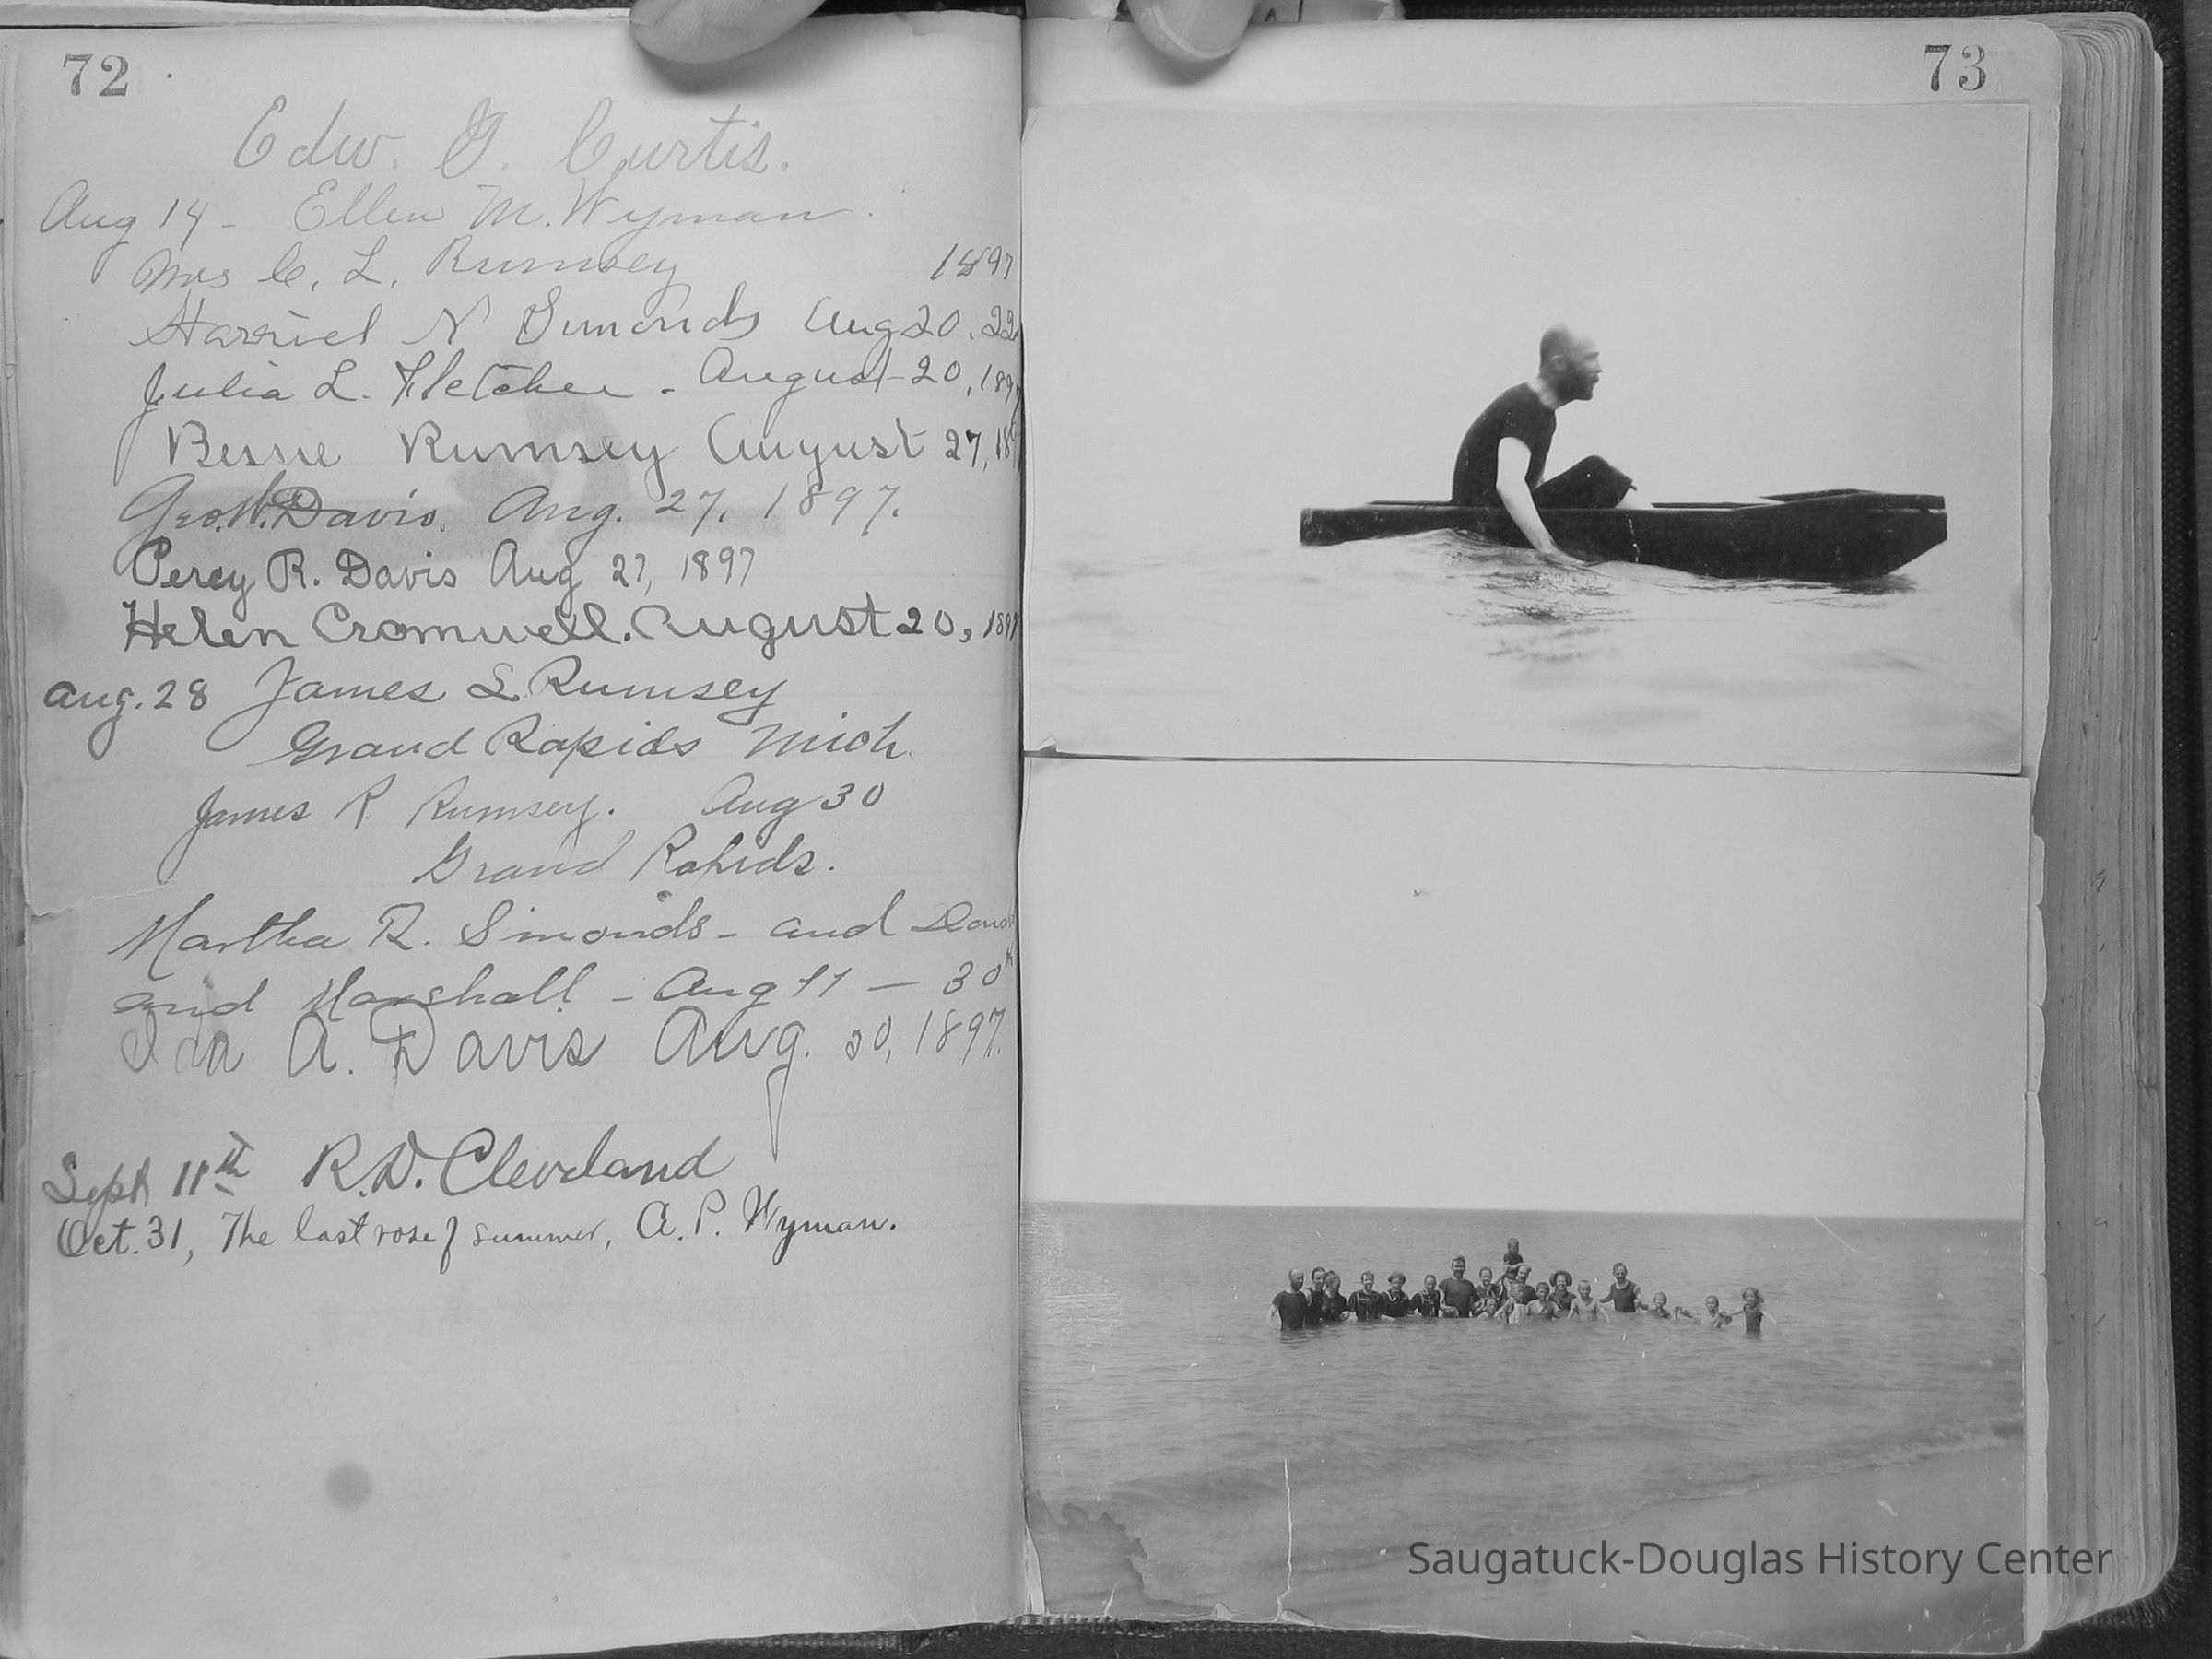 72
Edw. G. Curtis.
Aug 14 - Ellen M. Wyman.
Mrs C. L. Rumsey 1897
Harriet N Simonds Aug 20.22
Julia L. Fletcher - August 20, 1897
Bessie Rumsey August 27, 189
Geo. W. Davis. Aug. 27, 1897.
Percy R. Davis Aug 27, 1897
Helen Cromwell. August 20, 1897
Aug. 28 James L Rumsey
Grand Rapids Mich.
James R Rumsey. Aug 30
Grand Rapids.
Martha R. Simonds - and
and Marshall - Aug 11 - 30th
Ida A. Davis Aug. 30, 1897.
Sept 11th R.D. Cleveland
Oct. 31, The last rose of summer, A. P. Wyman.
73
Saugatuck-Douglas History Center